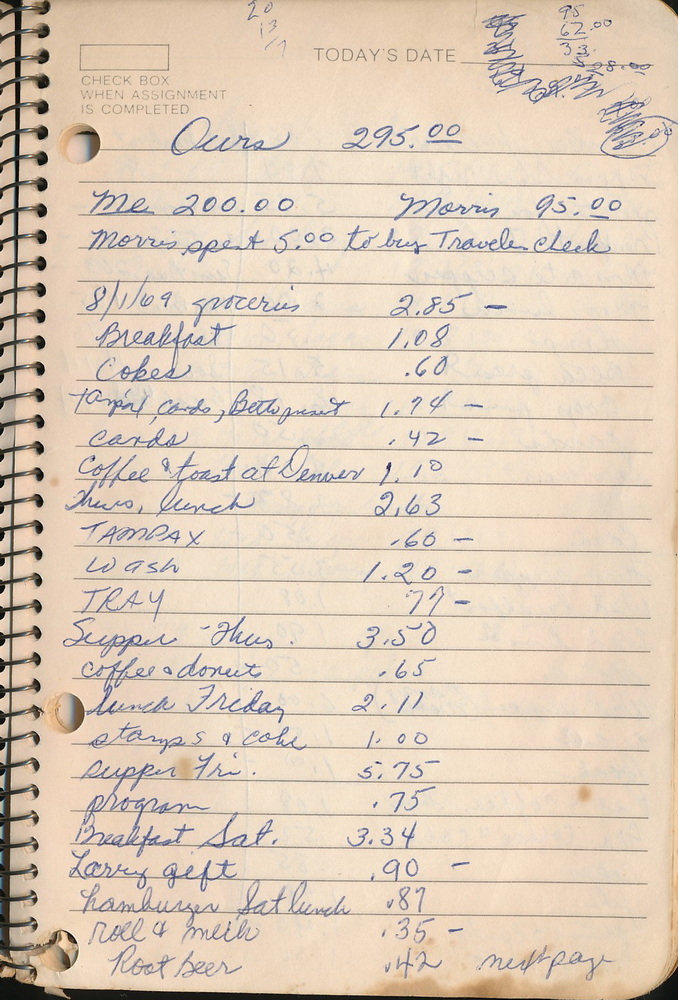 20
13
17
95
62.00
33.
CHECK BOX
WHEN ASSIGNMENT
IS COMPLETED
TODAY'S DATE
Ours 295.00
Me 200.00 Morris 95.00
Morris spent 5.00 to buy Traveler check
8/1/69 groceries 2.85 -
Breakfast 1.08
Cokes .60
cards, Betto present 1.74 -
cards .42 -
Coffee & toast at Denver 1.10
Thurs, lunch 2.63
TAMPAX .60 -
wash 1.20 -
TRAY 77 -
Supper - Thus. 3.50
coffee & donuts .65
lunch Friday 2.11
stamps & coke 1.00
supper Fri. 5.75
program .75
Breakfast Sat. 3.34
Larry gift .90 -
hamburger Sat lunch .87
roll & milk .35 -
Root beer .42 next page